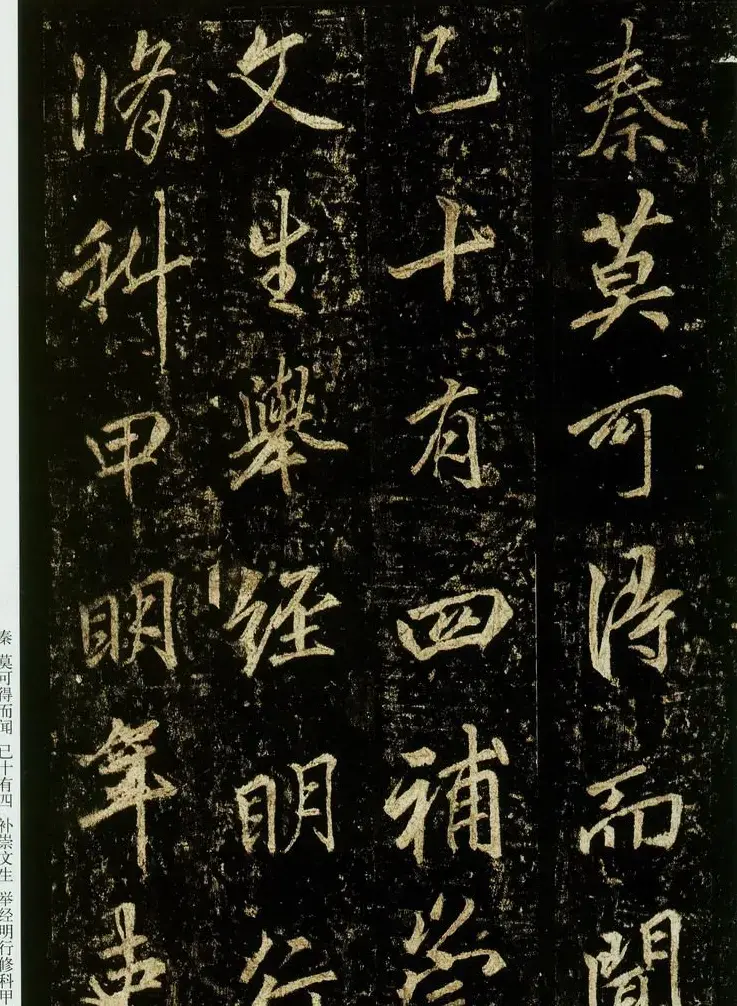 秦莫可得而聞
已十有四補崇
文生舉經明行
脩科甲明年吏
秦 莫可得而闻 已十有四 补崇文生 举经明行修科甲